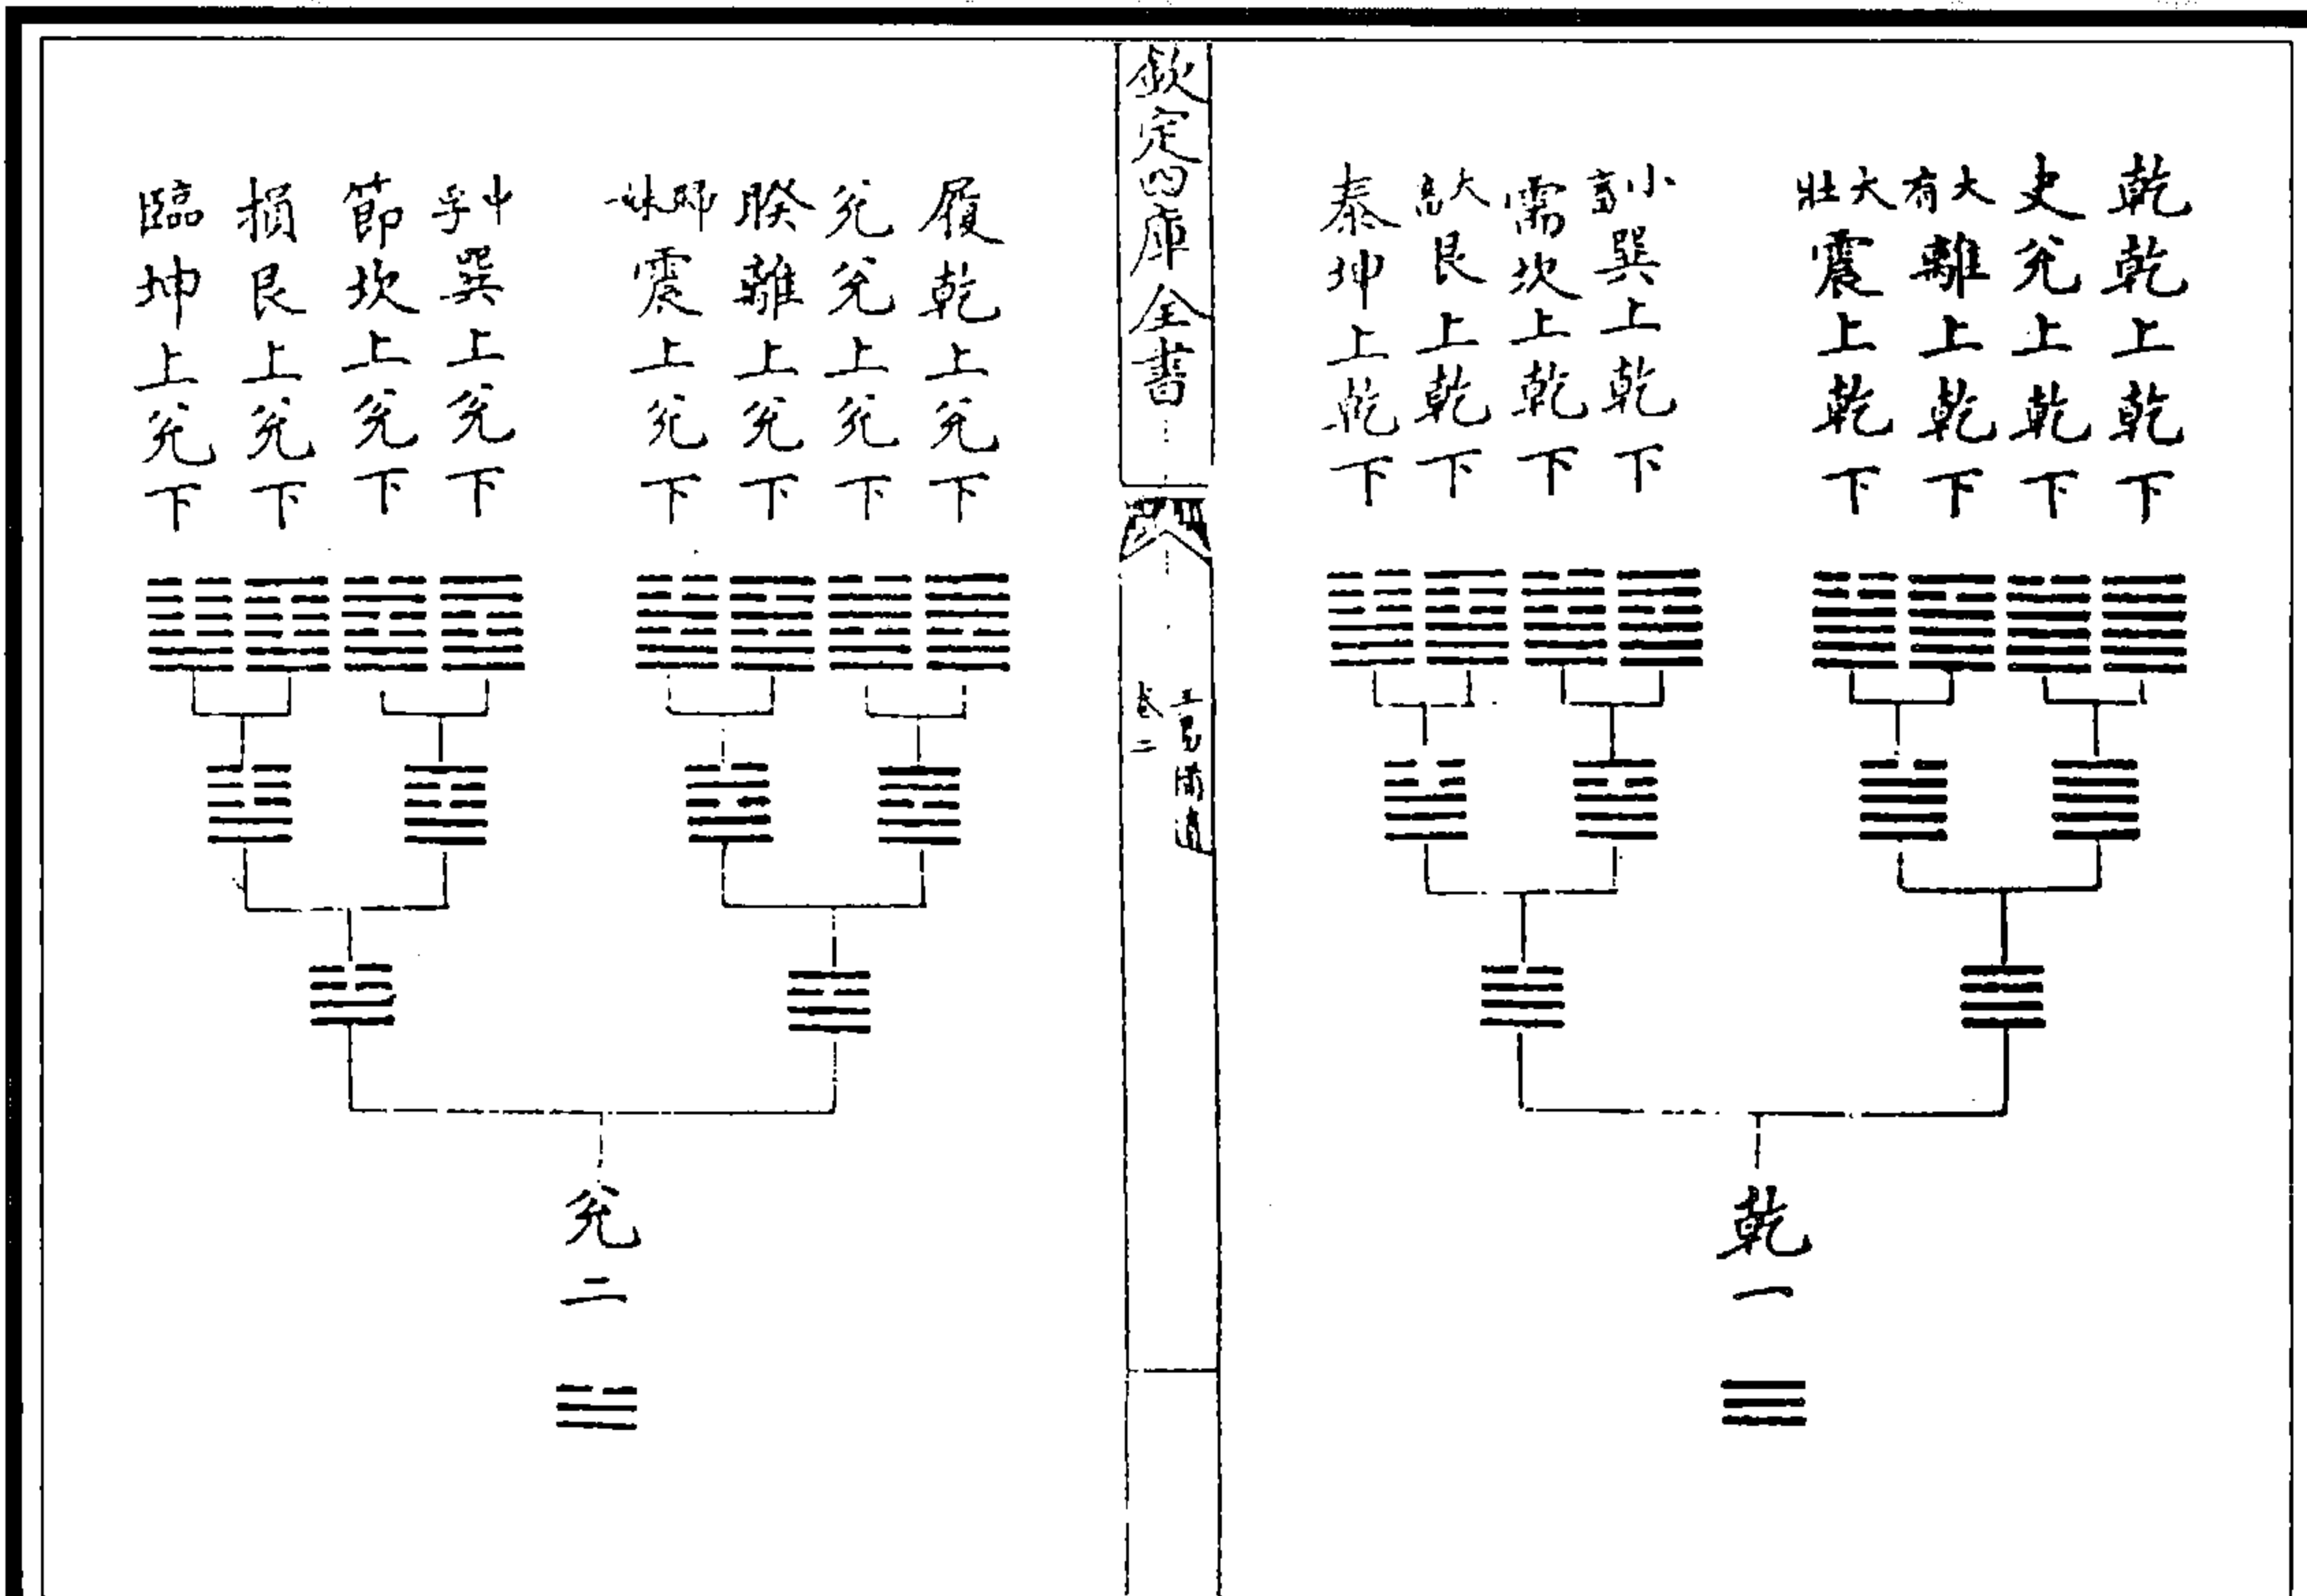 乾乾上乾下
夬兌上乾下
大有離上乾下
大壯震上乾下
小畜巽上乾下
需坎上乾下
大畜艮上乾下
泰坤上乾下
乾一
欽定四庫全書
三易備遺
卷二
履乾上兌下
兌兌上兌下
睽離上兌下
歸妹震上兌下
中孚巽上兌下
節坎上兌下
損艮上兌下
臨坤上兌下
兌二